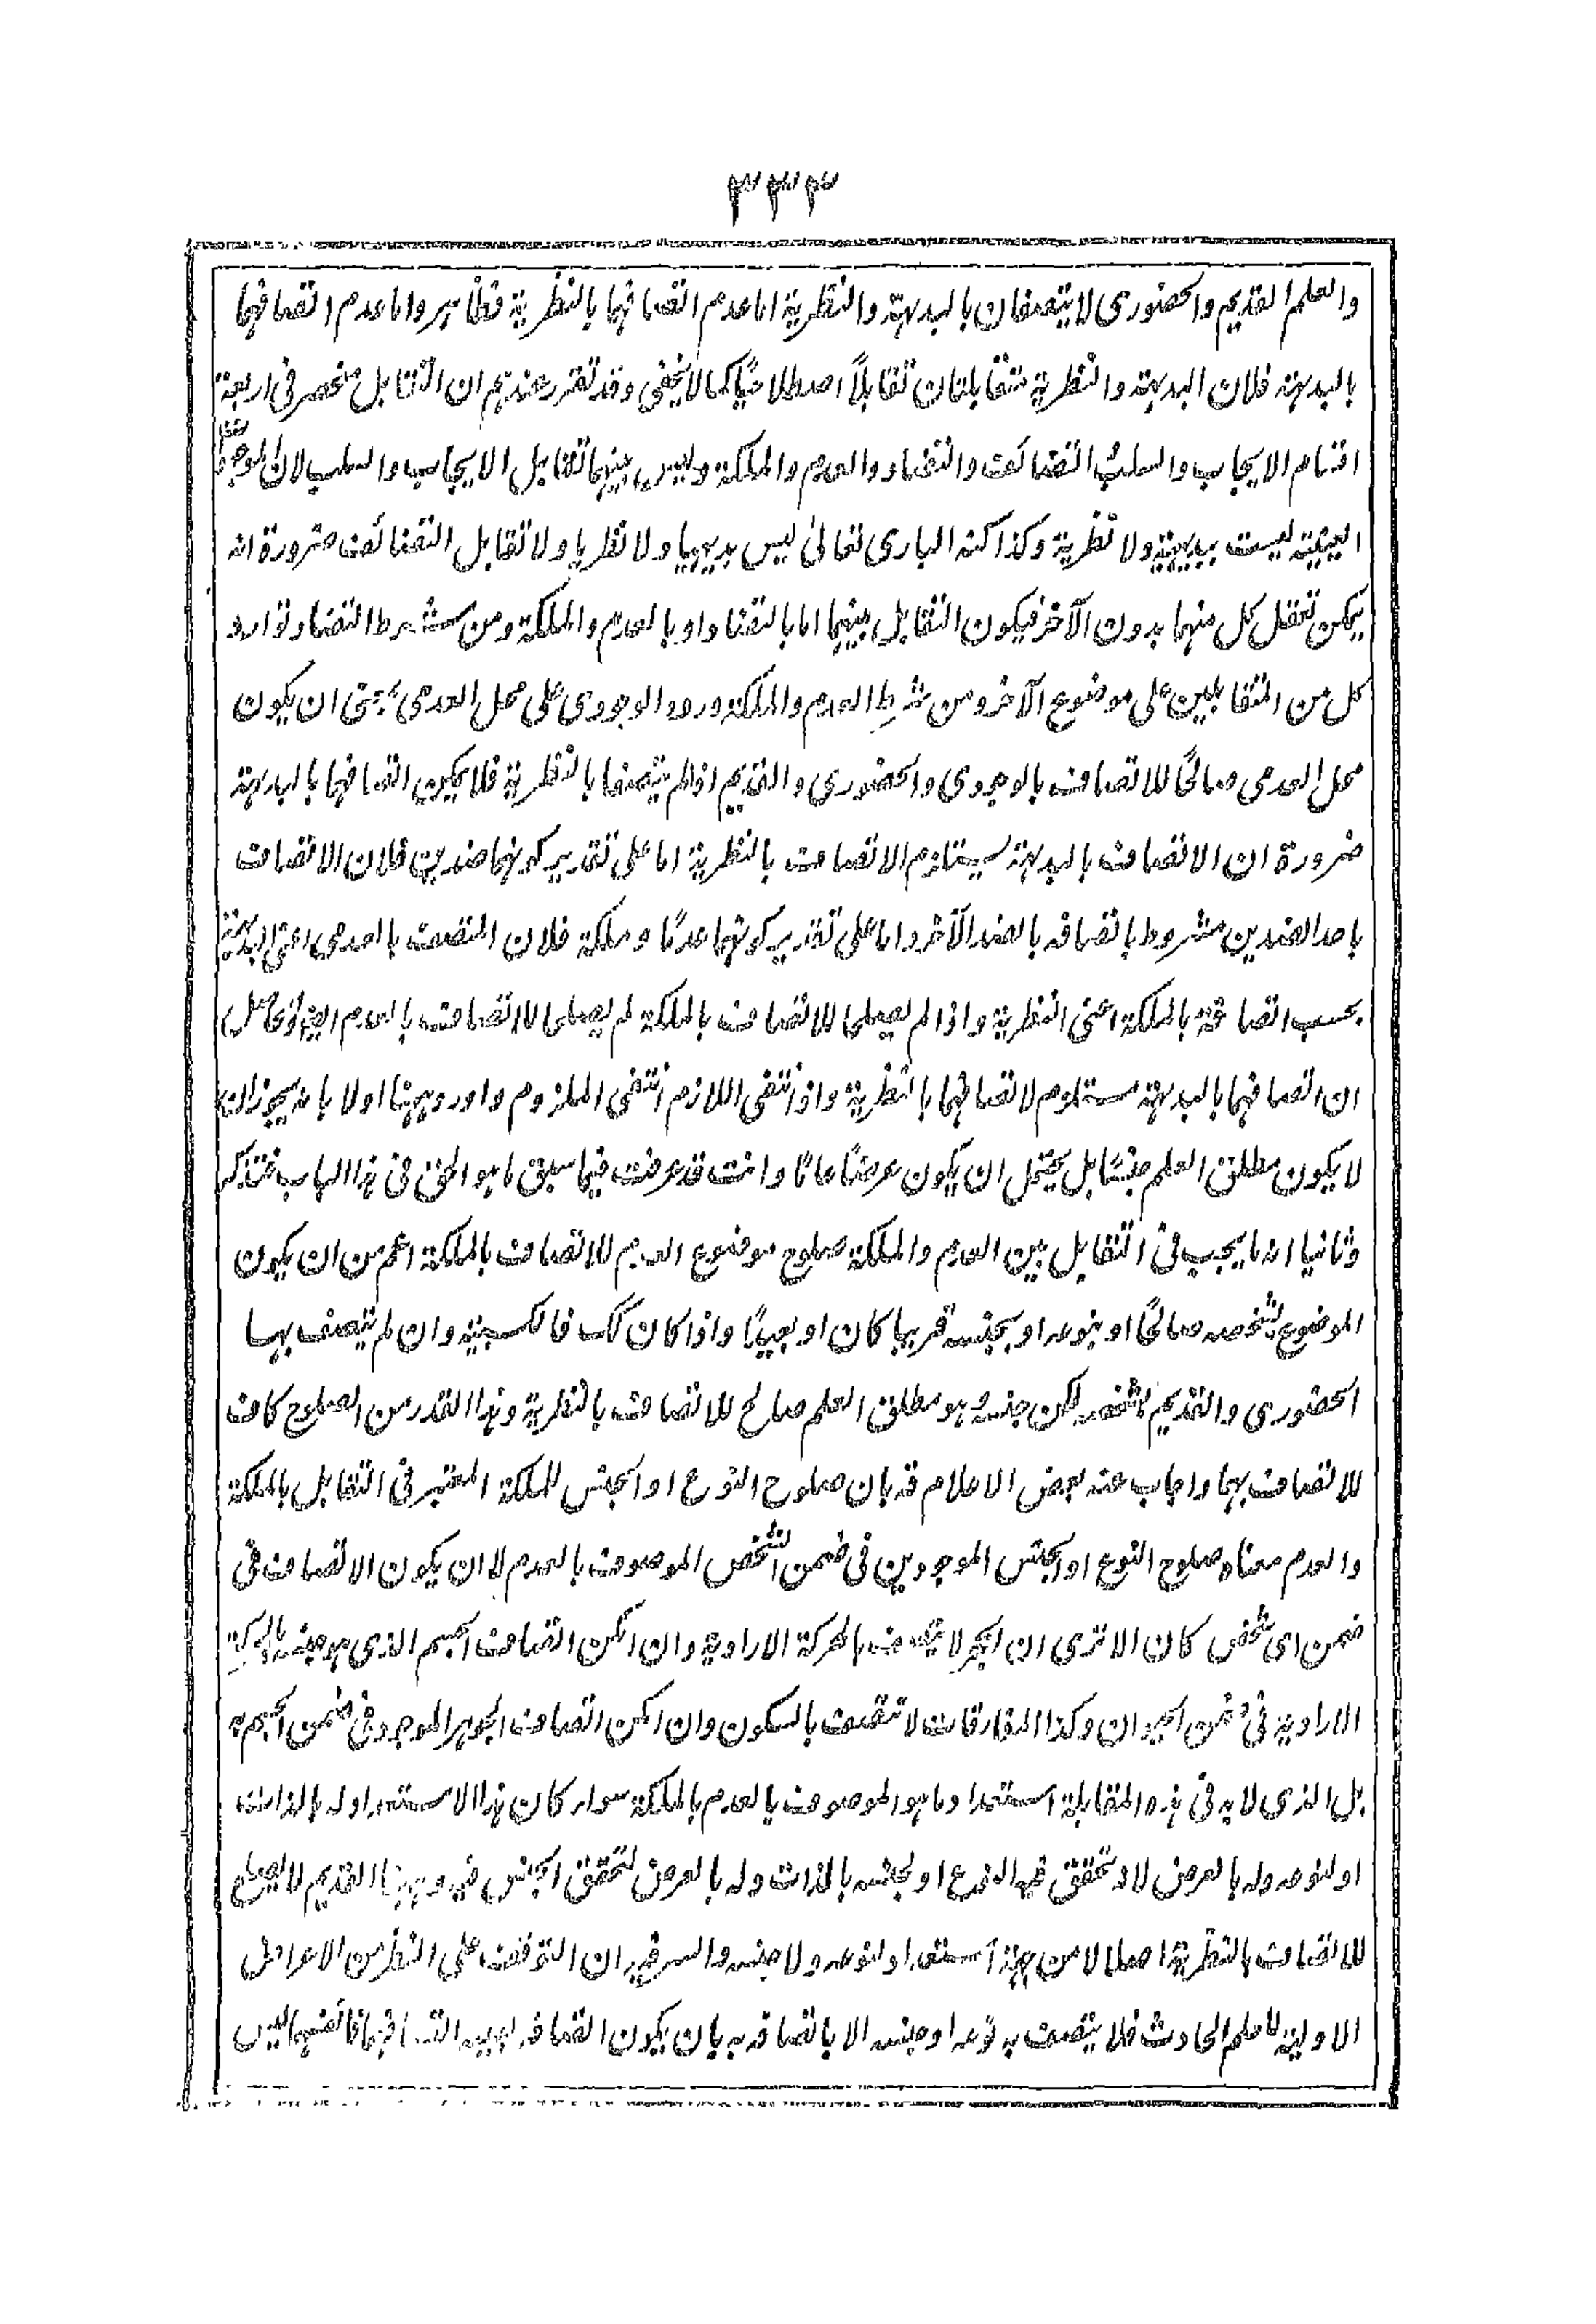 ٣٣٣
والعلم القديم والحضورى لا يتصفان بالبديهة والنظرية اما عدم اتصافهما بالنظرية فظاهر واما عدم اتصافهما
بالبديهة فلان البديهة والنظرية متقابلتان تقابلاً اصطلاحيًا كما لا يخفى وقد تقرر عندهم ان التقابل منحصر فى اربعة
اقسام الايجاب والسلب التضائف والتضاد والعدم والملكة وليس بينهما تقابل الايجاب والسلب لان
العينية ليست ببديهية ولا نظرية وكذا كنه البارى تعالىٰ ليس بديهيا ولا نظريا ولا تقابل التضائف ضرورة انه
يمكن تعقل كل منهما بدون الآخر فيكون التقابل بينهما اما بالتضاد او بالعدم والملكة ومن شرط التضاد توارد
كل من المتقابلين على موضوع الآخر ومن شرط العدم والملكة ورود الوجودى على محل العدمى بمعنى ان يكون
محل العدمى صالحًا للاتصاف بالوجودى والحضورى والقديم اذا لم يتصفا بالنظرية فلا يمكن اتصافهما بالبديهة
ضرورة ان الاتصاف بالبديهة يستلزم الاتصاف بالنظرية اما على تقدير كونهما ضدين فلان الاتصاف
باحد الضدين مشروط باتصافه بالضد الآخر واما على تقدير كونهما عدمًا وملكة فلان المتصف بالعدمى اعنى البديهة
يجب اتصافه بالملكة اعنى النظرية واذا لم يصلحا للاتصاف بالملكة لم يصلحا للاتصاف بالعدم
ان اتصافهما بالبديهة مستلزم لاتصافهما بالنظرية واذا انتفى اللازم انتفى الملزوم واورد ههنا اولا بانه يجوز ان
لا يكون مطلق العلم جنسًا بل يحتمل ان يكون عرضًا عامًا وانت قد عرفت فيما سبق ما هو الحق فى هذا الباب فتذكر
وثانيا انه ما يجب فى التقابل بين العدم والملكة صلوح موضوع العدم للاتصاف بالملكة اعم من ان يكون
الموضوع لشخصه صالحًا او بنوعه او بجنسه قريبا كان او بعيدًا واذا كان كك فالكسبية وان لم يتصف بها
الحضورى والقديم لشخصه لكن جنسه وهو مطلق العلم صالح للاتصاف بالنظرية وهذا القدر من الصلوح كاف
للاتصاف بهما واجاب عنه بعض الاعلام قه بان صلوح النوع او الجنس للملكة المعتبر فى التقابل بالملكة
والعدم معناه صلوح النوع او الجنس الموجودين فى ضمن الشخص الموصوف بالعدم لا ان يكون الاتصاف فى
ضمن اى شخص كان الا ترى ان الحجر لا يتصف بالحركة الارادية وان امكن اتصاف الجسم الذى هو جنسه بالحركة
الارادية فى ضمن الحيوان وكذا المفارقات لا تتصف بالسكون وان امكن اتصاف الجوهر الموجود فى ضمن الجسم به
بل الذى لا بد فى هذه المقابلة استعداد ما هو الموصوف بالعدم بالملكة سواء كان هذا الاستعداد له بالذات
او لنوعه وله بالعرض لاد تحقق فيه النوع او لجنسه بالذات وله بالعرض لتحقق الجنس فيه وههنا القديم لا يصلح
للاتصاف بالنظرية اصلا لا من جهة استعداد نوعه ولا جنسه والسر فيه ان التوقف على النظر من الاعراض
الاولية للعلم الحادث فلا يتصف به نوعه او جنسه الا باتصافه به بان يكون اتصافه